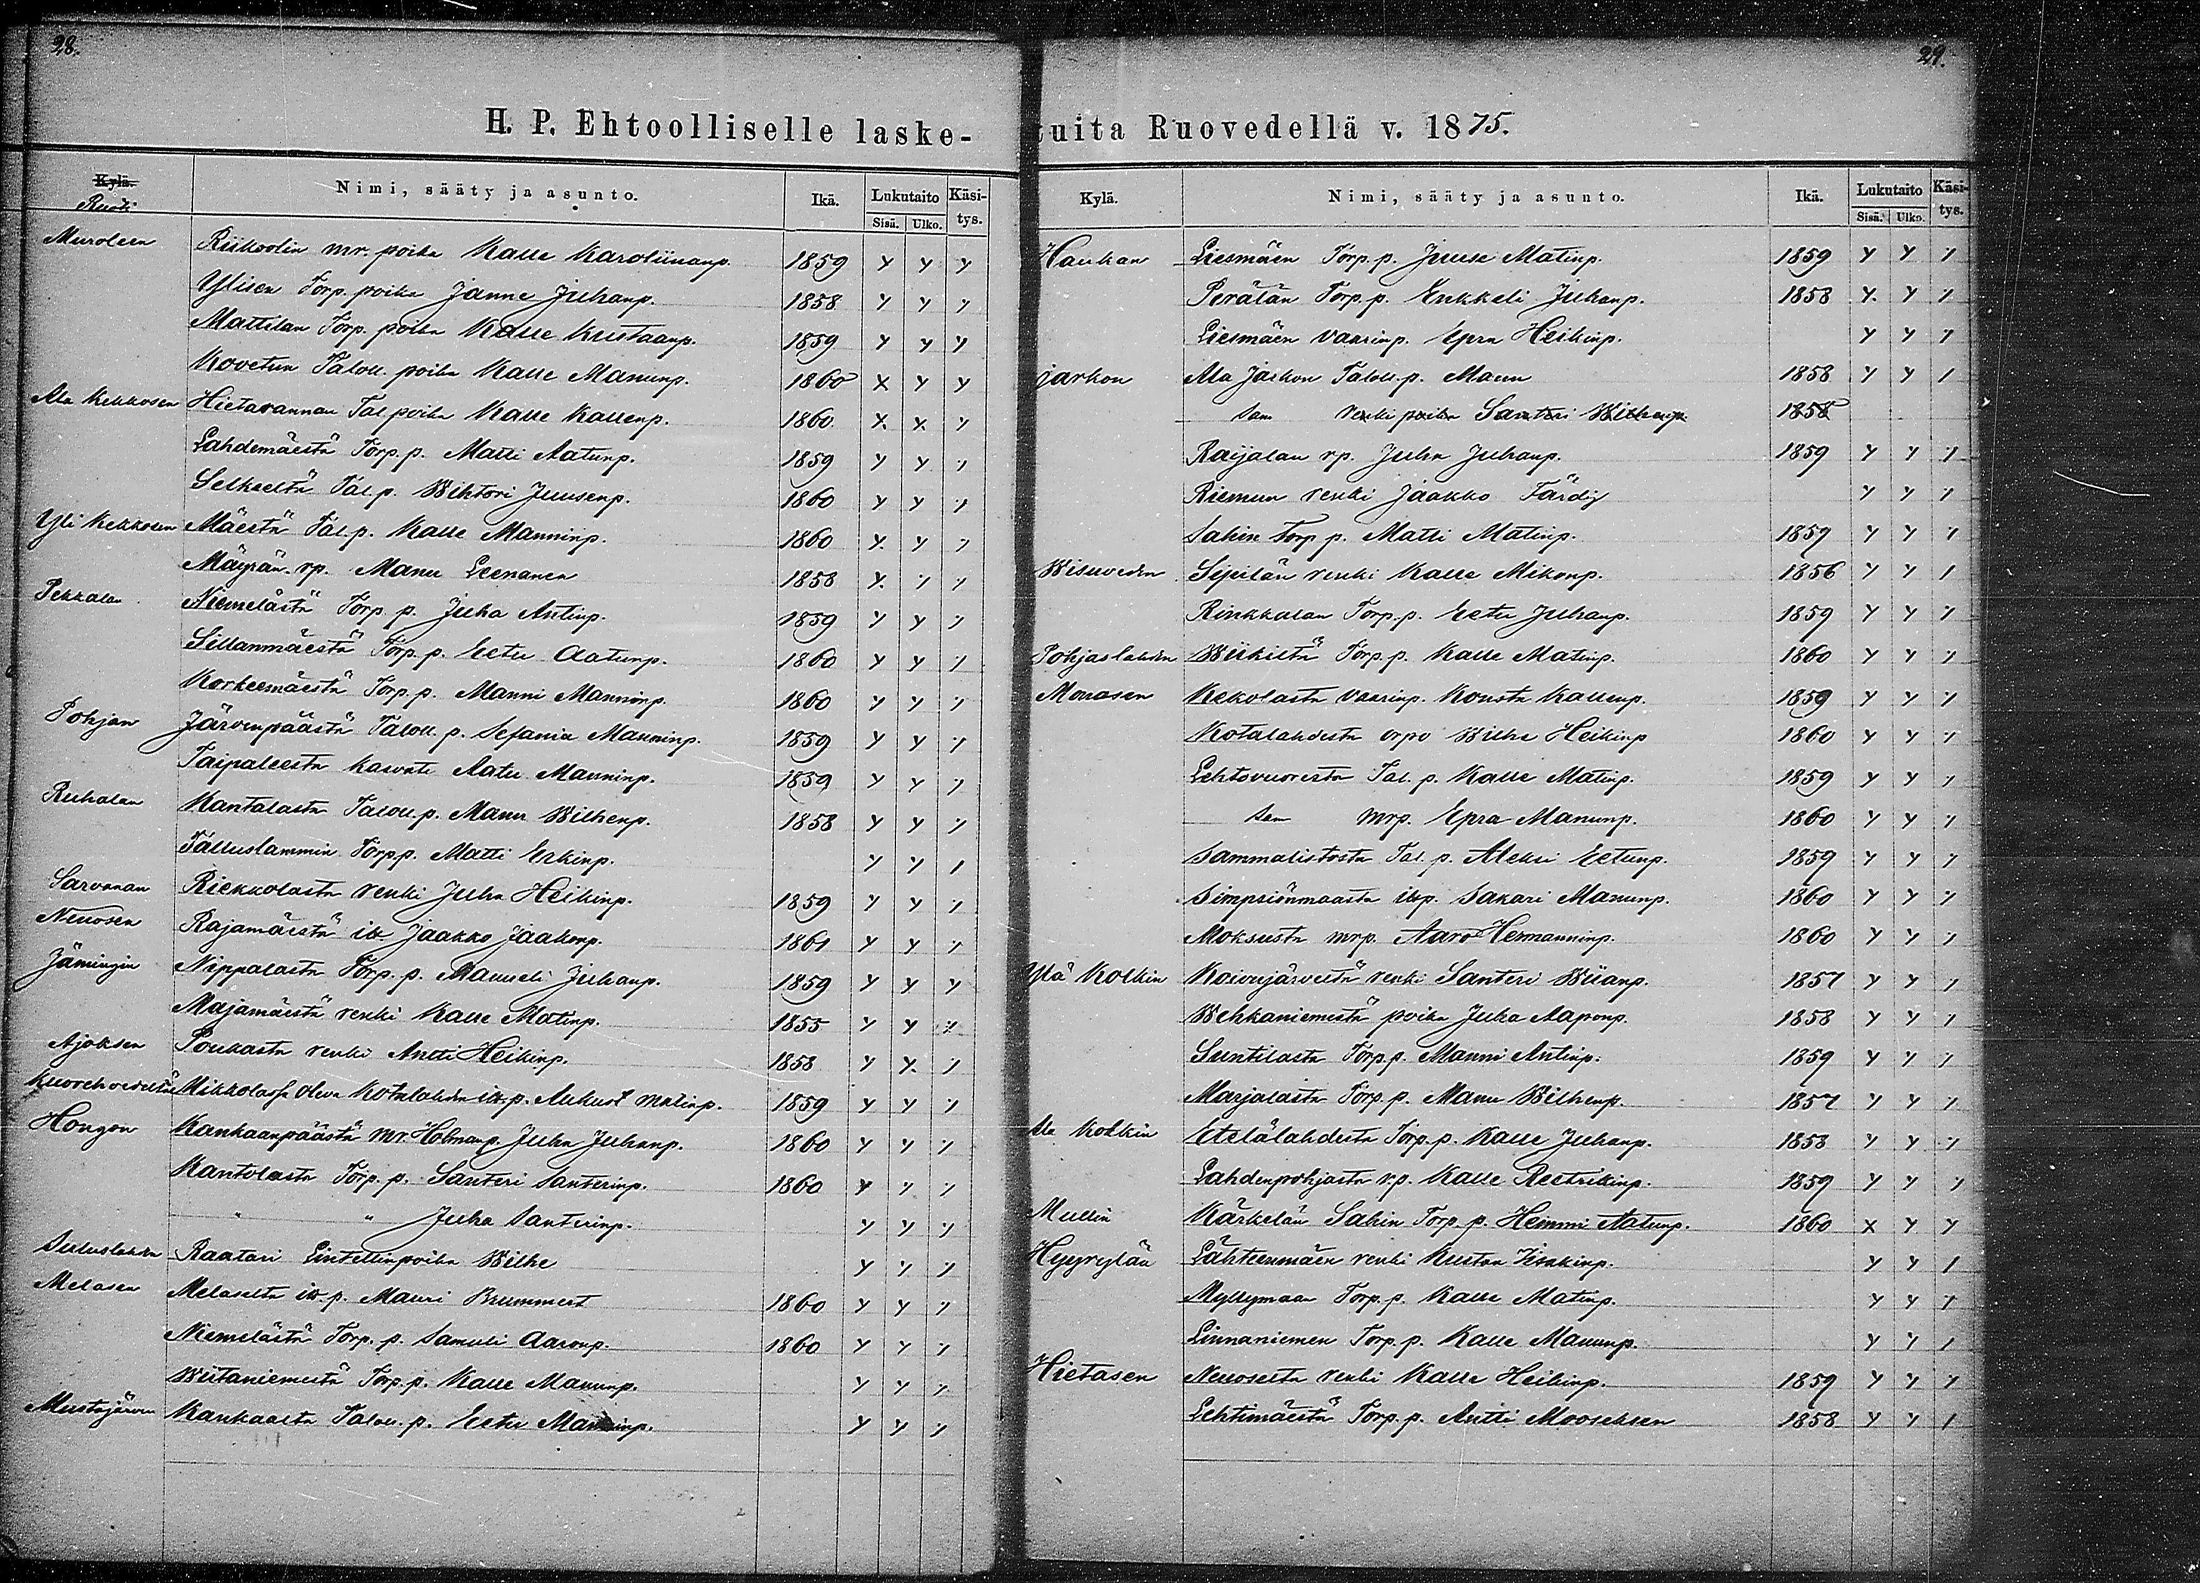 28.
H. P. Ehtoolliselle laske-
Kylä. Nimi, sääty ja asunto. Ikä. Lukutaito Käsi-tys.
Rusti Sisä. Ulko.
Muroleen Riikoolin mr. poika Kalle Karoliinanp. 1859 y y y
Ylisen Torp. poika Janne Juhanp. 1858 y y y
Mattilan Torp. poika Kalle Kustaanp. 1859 y y y
Kovetun Taloll. poika Kalle Manunp. 1860 x y y
Ala Kekkosen Hietarannan Tal poika Kalle Kallenp. 1860 x x y
Lahdemäestä Torp. p. Matti Aatunp. 1859 y y y
Selkeeltä Tal. p. Wihtori Juusenp. 1860 y y y
Yli Kekkosen Mäestä Tal. p. Kalle Manninp. 1860 y y y
Mäyrän rp. Manu Leenanen 1858 y y y
Pekkalan Niemelästä Torp. p. Juha Antinp. 1859 y y y
Sillanmäestä Torp. p. Eetu Aatunp. 1860 y y y
Korkeemäestä Torp. p. Manni Manninp. 1860 y y y
Pohjan Järvenpäästä Taloll. p. Sefania Manninp. 1859 y y y
Taipaleesta kasvati Aatu Manninp. 1859 y y y
Ruhalan Kantalasta Taloll. p. Manu Wilhenp. 1858 y y y
Talluslammin Torp p. Matti Erkinp. y y y
Sarvanan Riekkolasta renki Juha Heikinp. 1859 y y y
Neuosen Rajamäestä itr. Jaakko Jaakonp. 1861 y y y
Jämingin Nippalasta Torp. p. Manueli Juhanp. 1859 y y y
Majamäestä renki Kalle Matinp. 1855 y y y
Ajoksen Poukasta renki Antti Heikinp. 1858 y y y
Kuorehvedeltä Mikkolassa oleva Kotalahden it. p. Aukust Matinp. 1859 y y y
Hongon Kankaanpäästä mr. Holmanp. Juha Juhanp. 1860 y y y
Kantolasta Torp. p. Santeri Santerinp. 1860 y y y
" " Juha Santerinp. y y y
Suluslahden Raatari Lintellinpoika Wilhe y y y
Melasen Melaselta it. p. Mauri Brummert 1860 y y y
Niemelästä Torp. p. Samuli Aaronp. 1860 y y y
Wiitaniemestä Torp. p. Kalle Manunp. y y y
Mustajärven Kankaalta Taloll. p. Eetu Manninp. y y y
29.
tuita Ruovedellä v. 1875.
Kylä. Nimi, sääty ja asunto. Ikä. Lukutaito Käsi-tys.
Sisä. Ulko.
Haukan Liesmäen Torp. p. Juuse Matinp. 1859 y y y
Perälän Torp. p. Enkkeli Juhanp. 1858 y y y
Liesmäen vaarinp. Epra Heikinp. y y y
Jarkon Ala Jarkon Taloll. p. Manu 1858 y y y
Sam renki poika Santeri Wilhenp. 1858
Raijalan rp. Juha Juhanp. 1859 y y y
Riemun renki Jaakko Färdig y y y
Sahin Torp p. Matti Matinp. 1859 y y y
Wisuveden Sipilän renki Kalle Mikonp. 1856 y y y
Rinkkalan Torp. p. Eetu Juhanp. 1859 y y y
Pohjaslahden Wiikiltä Torp. p. Kalle Matinp. 1860 y y y
Monasen Kekkolasta vaarinp. Konsta Kallenp. 1859 y y y
Kotalahdesta orpo Wilha Heikinp 1860 y y y
Lehtovuoresta Tal. p. Kalle Matinp. 1859 y y y
Sam mrp. Epra Manunp. 1860 y y y
Sammalistosta Tal. p. Aleksi Eetunp. 1859 y y y
Simpsiönmaasta itp. Sakari Manunp. 1860 y y y
Moksusta mrp. Aaro Hermanninp. 1860 y y y
Ylä Kolkin Koivujärveltä renki Santeri Wiianp. 1857 y y y
Wehkaniemestä poika Juha Aaponp. 1858 y y y
Suntilasta Torp. p. Manni Antinp. 1859 y y y
Marjalasta Torp. p. Manu Wilhenp. 1857 y y y
Ala Kolkin Etelälahdesta Torp. p. Kalle Juhanp. 1858 y y y
Lahdenpohjasta r.p. Kalle Reetrikinp. 1859 y y y
Mullin Kärkelän Sahin Torp. p. Hemmi Aatunp. 1860 x y y
Hyyrylän Lähteenmäen renki Kustaa Iisakinp. y y y
Myllymaan Torp. p. Kalle Matinp. y y y
Linnaniemen Torp. p. Kalle Manunp. y y y
Hietasen Neuosesta renki Kalle Heikinp. 1859 y y y
Lehtimäestä Torp. p. Antti Mooseksen 1858 y y y